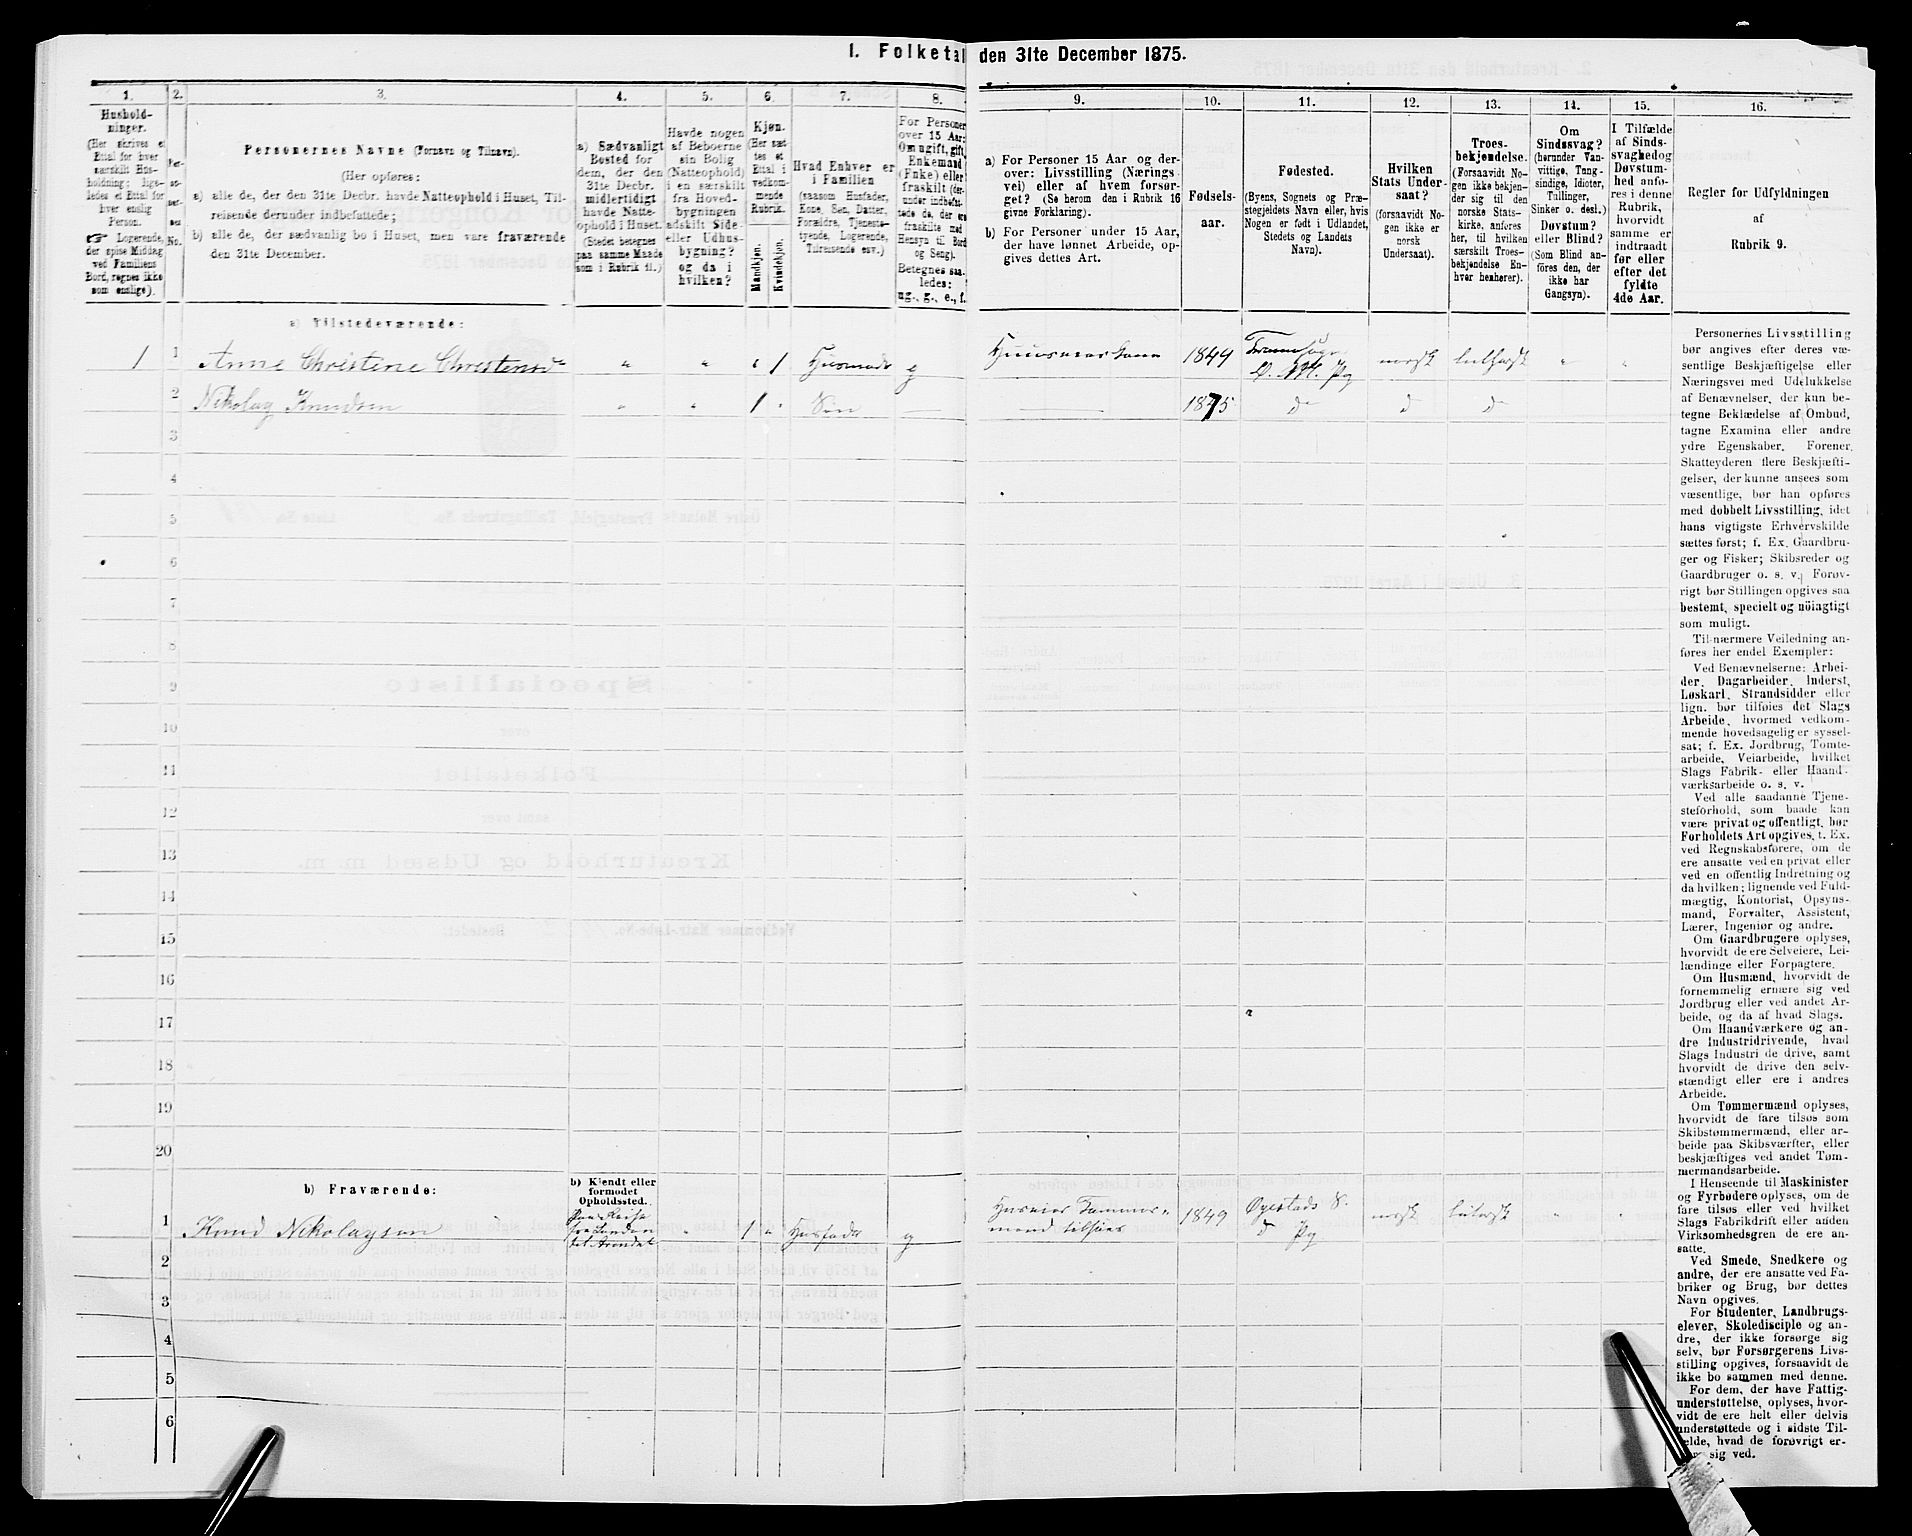 1. Folketal den 31te December 1875.
1. 2. 3. 4. 5. 6. 7. 8. 9. 10. 11. 12. 13. 14. 15. 16.
Hushold-
ninger.
(Her skrives et
Ettal for hver
særskilt Hus-
holdning; lige-
ledes et Ettal for
hver enslig
Person.
☞ Logerende,
der spise Middag
ved Familiens
Bord, regnes ikke
som enslige).
Per-
so-
ner-
nes
No.
Personernes Navne (Fornavn og Tilnavn).
(Her opføres:
a) alle de, der den 31te Decbr. havde Natteophold i Huset, Til-
reisende derunder indbefattede;
b) alle de, der sædvanlig bo i Huset, men vare fraværende
den 31te December.
a) Sædvanligt
Bosted for
dem, der den
31te Decbr.
midlertidigt
havde Natte-
ophold i Huset.
(Stedet betegnes
paa samme Maade
som i Rubrik 11.)
Havde nogen
af Beboerne
sin Bolig
(Natteophold)
i en særskilt
fra Hoved-
bygningen
adskilt Side-
eller Udhus-
bygning?
og da i
hvilken?
Kjøn.
(Her sæt-
tes et
Ettal i
vedkom-
mende
Rubrik.
Mandkjøn.
Kvindekjøn.
Hvad Enhver er
i Familien
(saasom Husfader,
Kone, Søn, Datter,
Forældre, Tjeneste-
tyende, Logerende,
Tilreisende osv.)
For Personer
over 15 Aar:
Om ugift, gift,
Enkemand
(Enke) eller
fraskilt (der-
under indbefat-
tede de, der ere
fraskilte med
Hensyn til Bord
og Seng).
Betegnes saa-
ledes:
ug., g., e., f.
a) For Personer 15 Aar og der-
over: Livsstilling (Nærings-
vei) eller af hvem forsør-
get? (Se herom den i Rubrik 16
givne Forklaring).
b) For Personer under 15 Aar,
der have lønnet Arbeide, op-
gives dettes Art.
Fødsels-
aar.
Fødested.
(Byens, Sognets og Præ-
stegjeldets Navn eller, hvis
Nogen er født i Udlandet,
Stedets og Landets
Navn).
Hvilken
Stats Under-
saat?
(forsaavidt No-
gen ikke er
norsk
Undersaat).
Troes-
bekjendelse.
(Forsaavidt No-
gen ikke bekjen-
der sig til den
norske Stats-
kirke, anføres
her, til hvilken
særskilt Troes-
bekjendelse En-
hver henhører).
Om
Sindssvag?
(herunder Van-
vittige, Tung-
sindige, Idioter,
Tullinger,
Sinker o. desl.)
Døvstum?
eller Blind?
(Som Blind an-
føres den, der
ikke har
Gangsyn).
I Tilfælde
af Sinds-
svaghed og
Døvstum-
hed anfø-
res i denne
Rubrik,
hvorvidt
samme er
indtraadt
før eller
efter det
fyldte
4de Aar.
Regler for Udfyldningen
af
Rubrik 9.
a) Tilstedeværende:
1 1 Anne Christine Christensd " " " 1 Husmoder g Huusmands Kone 1849 Ø. M. Pg norsk luthersk " "
2 Nikolay Knudsen " " 1 " Søn — — 1875 d d d
3
4
5
6
7
8
9
10
11
12
13
14
15
16
17
18
19
20
b) Fraværende:
b) Kjendt eller
formodet
Opholdssted.
1 Knud Nikolaysen Paa Reise
fra London
til Arendal " 1 " Husfader g 1849 Øyestads S.
d Pg norsk luthersk " "
2
3
4
5
6
Personernes Livsstilling
bør angives efter deres væ-
sentlige Beskjæftigelse eller
Næringsvei med Udelukkelse
af Benævnelser, der kun be-
tegne Beklædelse af Ombud,
tagne Examina eller andre
ydre Egenskaber. Forener
Skatteyderen flere Beskjæfti-
gelser, der kunne ansees som
væsentlige, bør han opføres
med dobbelt Livsstilling, idet
hans vigtigste Erhvervskilde
sættes først; f. Ex. Gaardbru-
ger og Fisker; Skibsreder og
Gaardbruger o. s. v. Forøv-
rigt bør Stillingen opgives saa
bestemt, specielt og nöiagtigt
som muligt.
Til nærmere Veiledning an-
føres her endel Exempler:
Ved Benævnelserne: Arbei-
der, Dagarbeider, Inderst,
Løskarl, Strandsidder eller
lign. bør tilføies det Slags
Arbeide, hvormed vedkom-
mende hovedsagelig er syssel-
sat; f. Ex. Jordbrug, Tomte-
arbeide, Veiarbeide, hvilket
Slags Fabrik- eller Haand-
værksarbeide o. s. v.
Ved alle saadanne Tjene-
steforhold, som baade kan
være privat og offentligt, bør
Forholdets Art opgives, t. Ex.
ved Regnskabsførere, om de
ere ansatte ved en privat eller
ved en offentlig Indretning og
da hvilken; lignende ved Fuld-
mægtig, Kontorist, Opsyns-
mand, Forvalter, Assistent,
Lærer, Ingeniør og andre.
Om Gaardbrugere oplyses,
hvorvidt de ere Selveiere, Lei-
lændinge eller Forpagtere.
Om Husmænd, hvorvidt de
fornemmelig ernære sig ved
Jordbrug eller ved andet Ar-
beide, og da af hvad Slags.
Om Haandværkere og an-
dre Industridrivende, hvad
Slags Industri de drive, samt
hvorvidt de drive den selv-
stændigt eller ere i andres
Arbeide.
Om Tømmermænd oplyses,
hvorvidt de fare tilsøs som
Skibstømmermænd, eller ar-
beide paa Skibsværfter, eller
beskjæftiges ved andet Tøm-
mermandsarbeide.
I Henseende til Maskinister
og Fyrbødere oplyses, om de
fare tilsøs eller ved hvilket
Slags Fabrikdrift eller anden
Virksomhedsgren de ere an-
satte.
Ved Smede, Snedkere og
andre, der ere ansatte ved Fa-
briker og Brug, bør dettes
Navn opgives.
For Studenter, Landbrugs-
elever, Skoledisciple og an-
dre, der ikke forsørge sig
selv, bør Forsørgerens Livs-
stilling opgives, forsaavidt de
ikke bo sammen med denne.
For dem, der have Fattig-
understøttelse, oplyses, hvor-
vidt de ere helt eller delvis
understøttede og i sidste Til-
ælde, hvad de forøvrigt er-
sig ved.